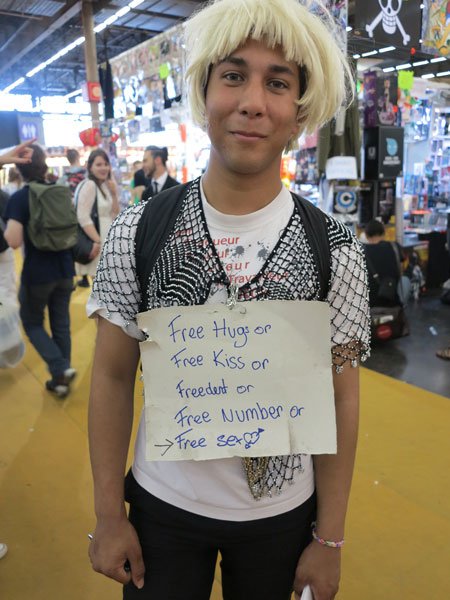 Free Hugs or
Free Kiss or
Freedent or
Free Number or
→ Free sex